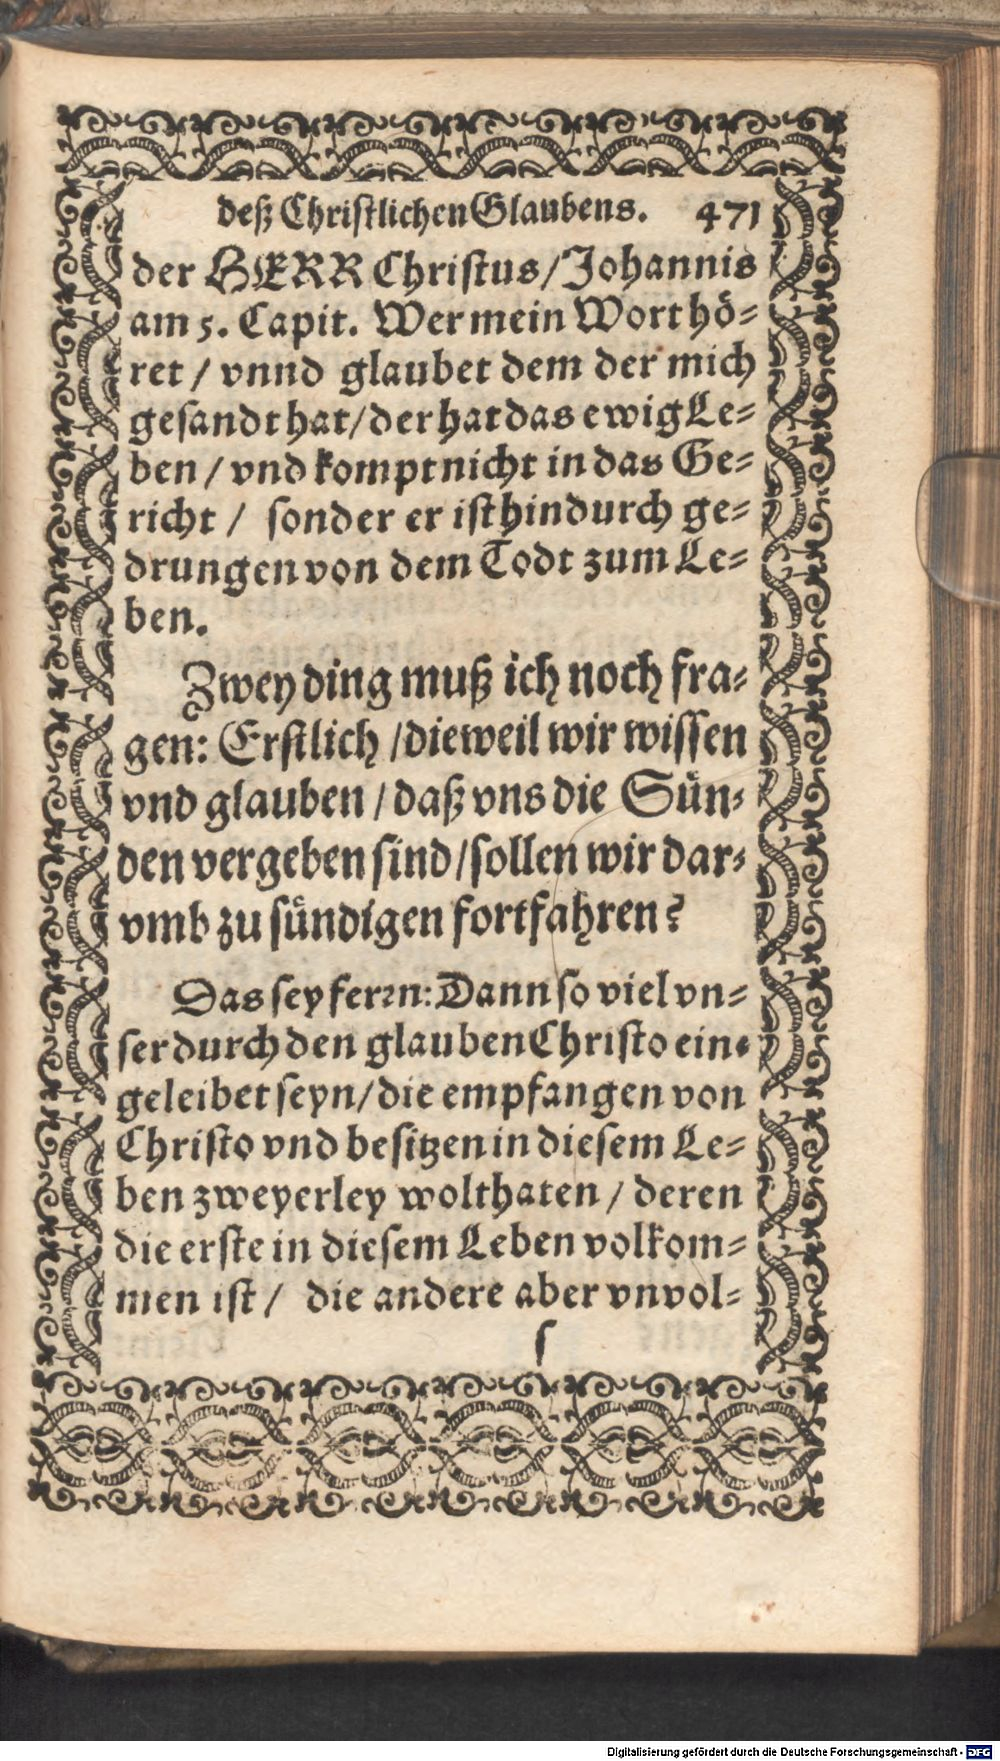 deß Christlichen Glaubens. 471
der HERR Christus/Johannis
am 5. Capit. Wer mein Wort hö⸗
ret / vnnd glaubet dem der mich
gesandt hat/der hat das ewig Le⸗
ben / vnd kompt nicht in das Ge⸗
richt / sonder er ist hindurch ge⸗
drungen von dem Todt zum Le⸗
ben.
Zwey ding muß ich noch fra⸗
gen: Erstlich /dieweil wir wissen
vnd glauben /daß vns die Sün⸗
den vergeben sind/sollen wir dar⸗
vmb zu sündigen fortfahren?
Das sey ferꝛn: Dann so viel vn⸗
ser durch den glauben Christo ein⸗
geleibet seyn/die empfangen von
Christo vnd besitzen in diesem Le⸗
ben zweyerley wolthaten / deren
die erste in diesem Leben volkom⸗
men ist / die andere aber vnvol⸗
ſ
Digitalisierung gefördert durch die Deutsche Forschungsgemeinschaft - DFG